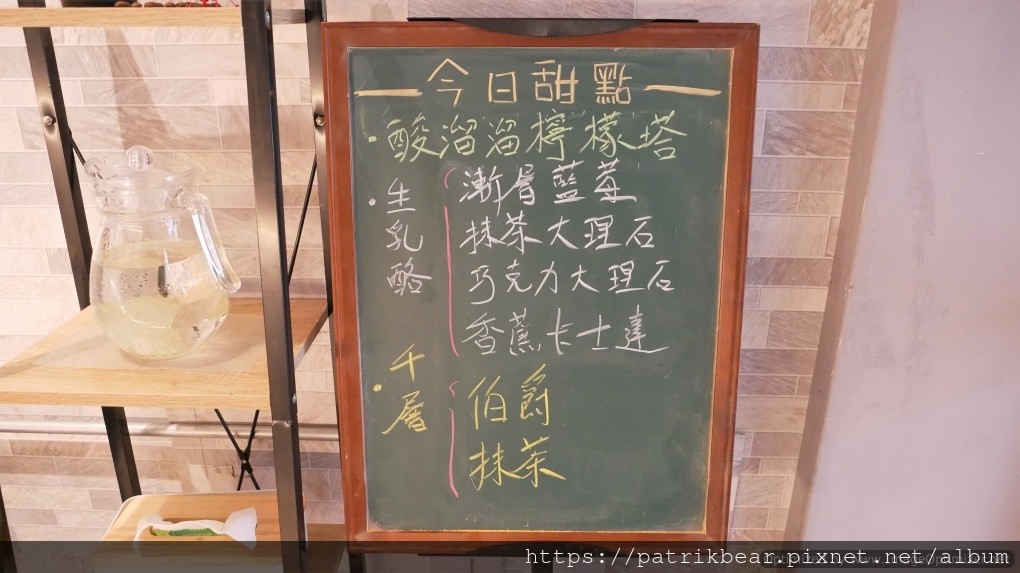 今日甜點
· 酸溜溜檸檬塔
· 生乳酪
漸層藍莓
抹茶大理石
巧克力大理石
香蕉卡士達
· 千層
伯爵
抹茶
https://patrikbear.pixnet.net/album